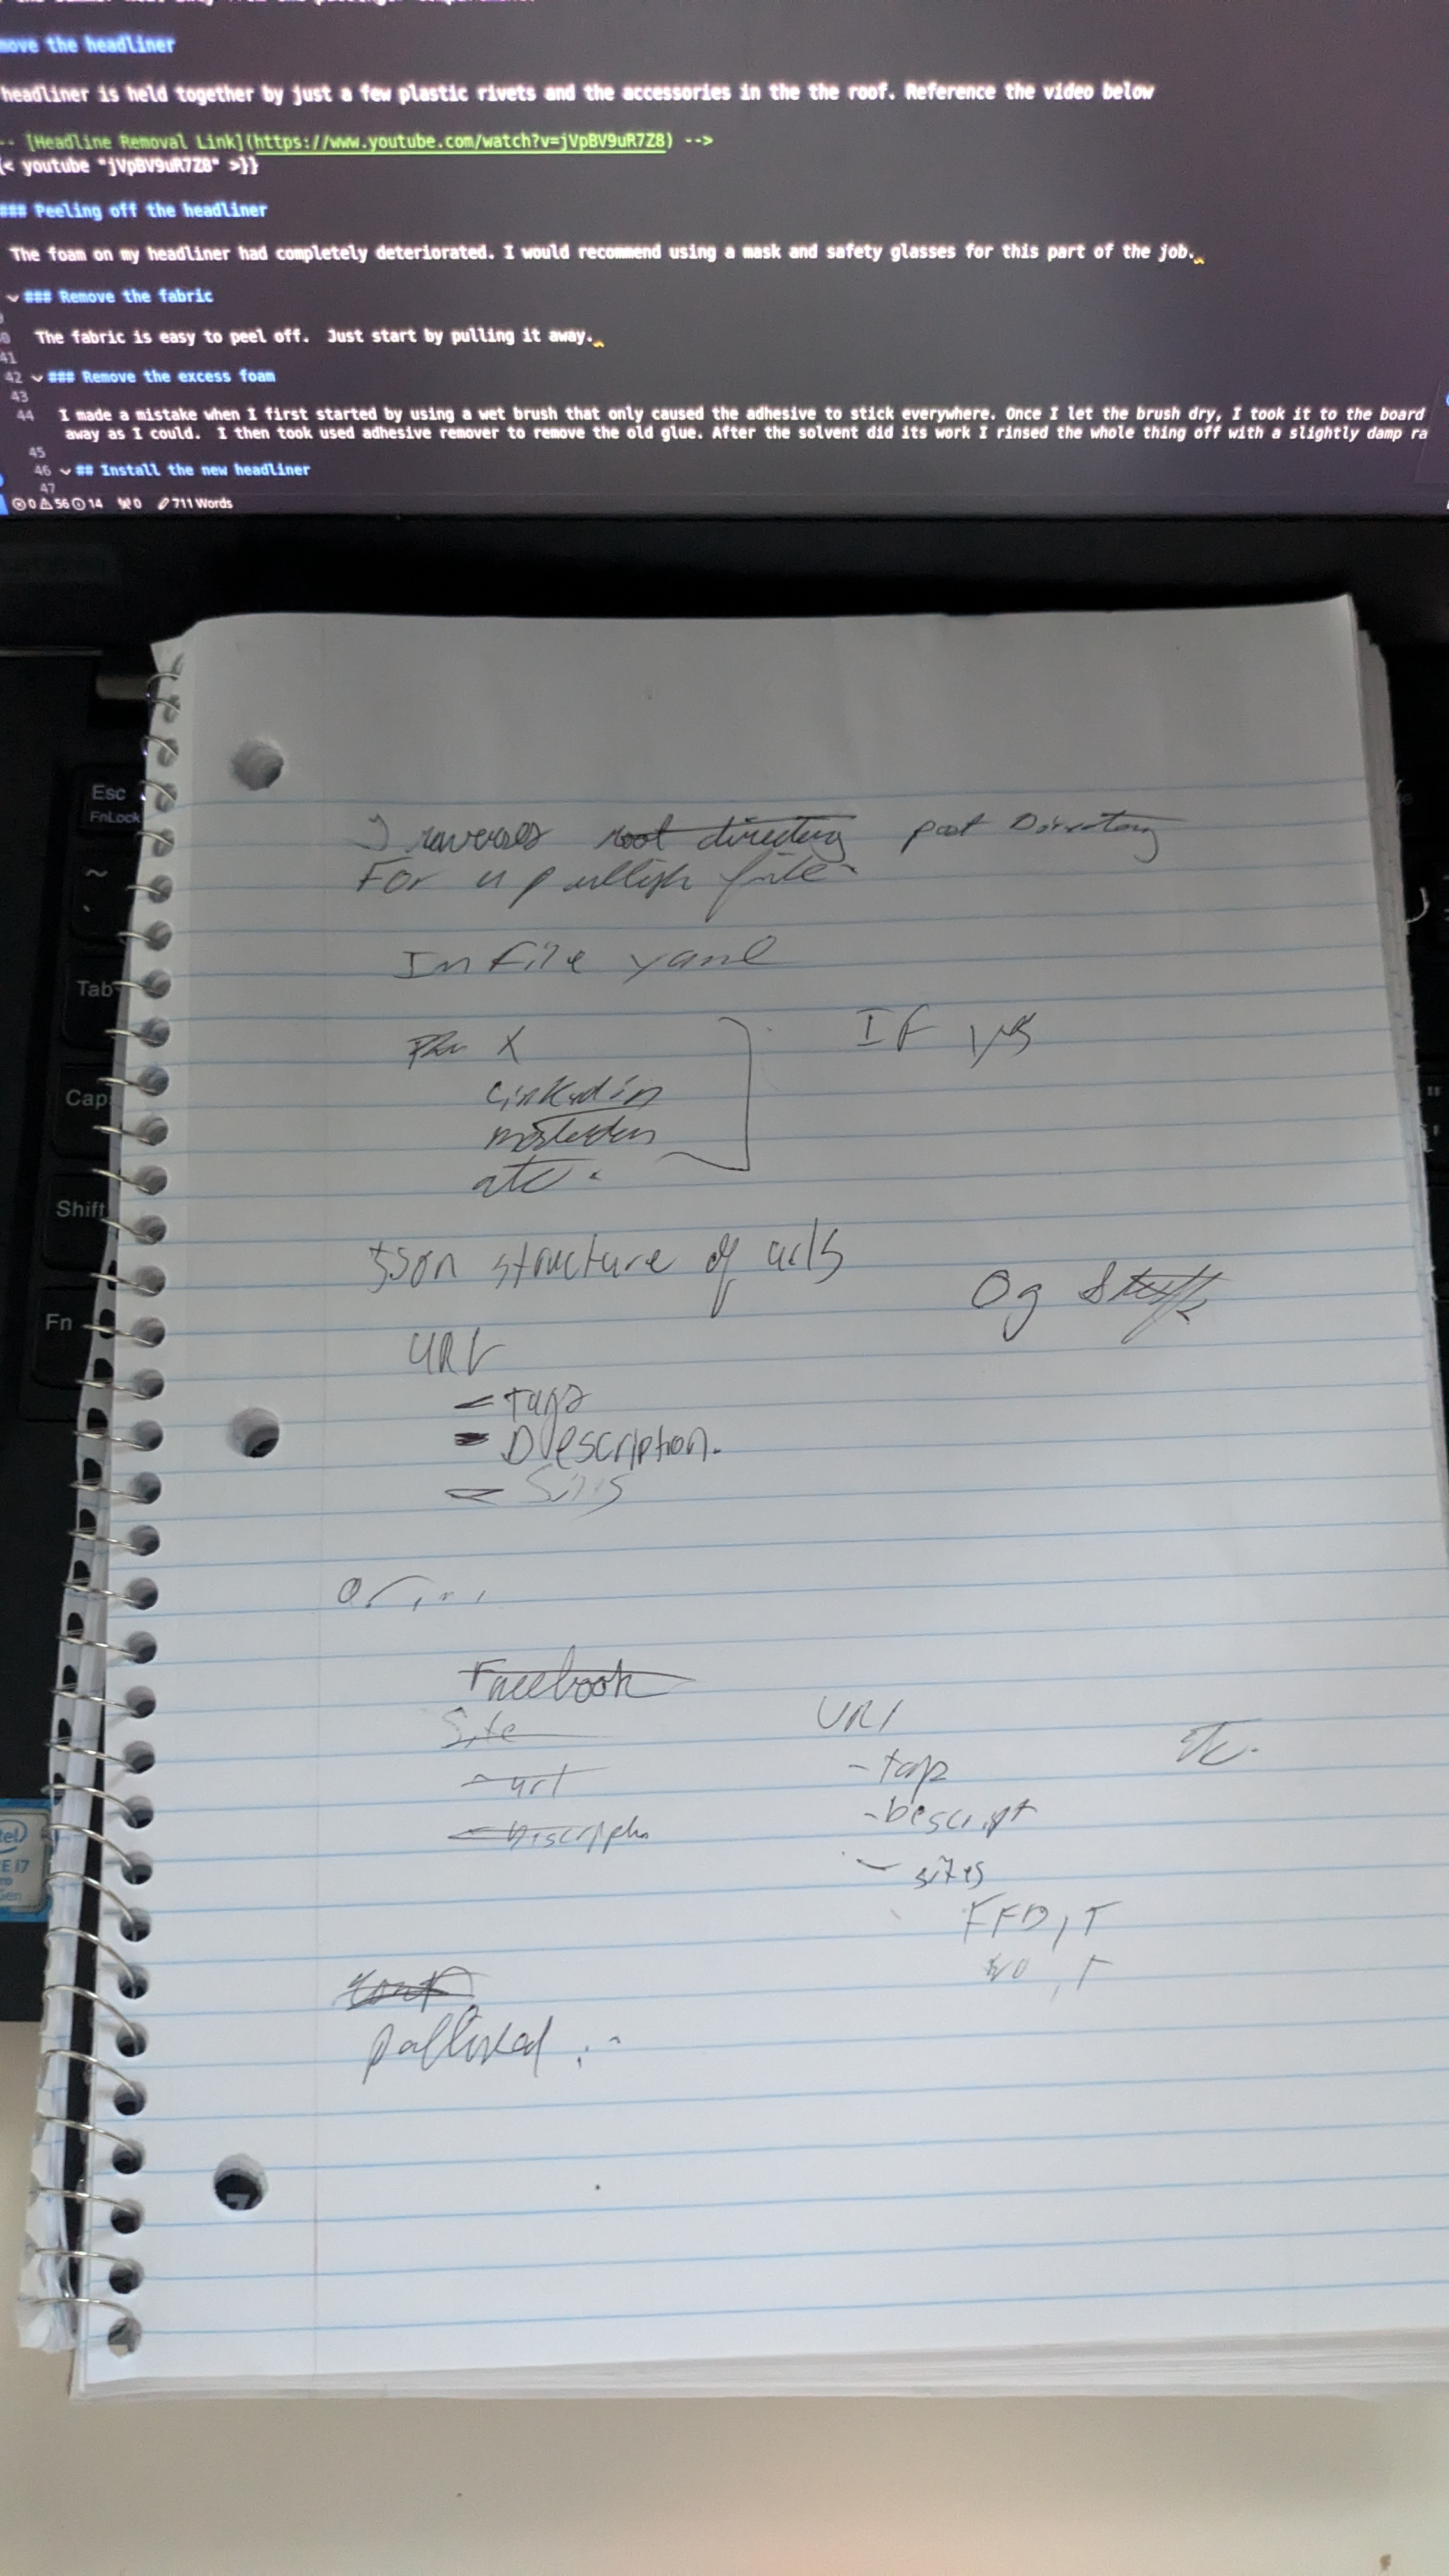 move the headliner
headliner is held together by just a few plastic rivets and the accessories in the the roof. Reference the video below
-- [Headline Removal Link](https://www.youtube.com/watch?v=jVpBV9uR7Z8) -->
{< youtube "jVpBV9uR7Z8" >}}
### Peeling off the headliner
The foam on my headliner had completely deteriorated. I would recommend using a mask and safety glasses for this part of the job.
### Remove the fabric
0 The fabric is easy to peel off. Just start by pulling it away.
41
42 ### Remove the excess foam
43
44 I made a mistake when I first started by using a wet brush that only caused the adhesive to stick everywhere. Once I let the brush dry, I took it to the board
away as I could. I then took used adhesive remover to remove the old glue. After the solvent did its work I rinsed the whole thing off with a slightly damp ra
45
46 ## Install the new headliner
47
0 56 14 0 711 Words
Esc
FnLock
Tab
Caps
Shift
Fn
root directory post Directory
For file
In file yaml
X
IF yes
Linkedin
mastodon
etc.
Json structure of urls
Og Stuff
URL
- Tags
- Description.
or...
Facebook
Site
URl
etc.
- url
- tags
- Descript
- sites
FFB, T
intel
i7
Gen